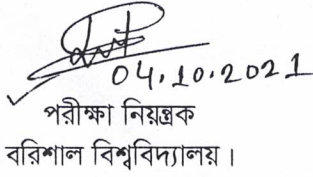 04.10.2021
পরীক্ষা নিয়ন্ত্রক
বরিশাল বিশ্ববিদ্যালয়।